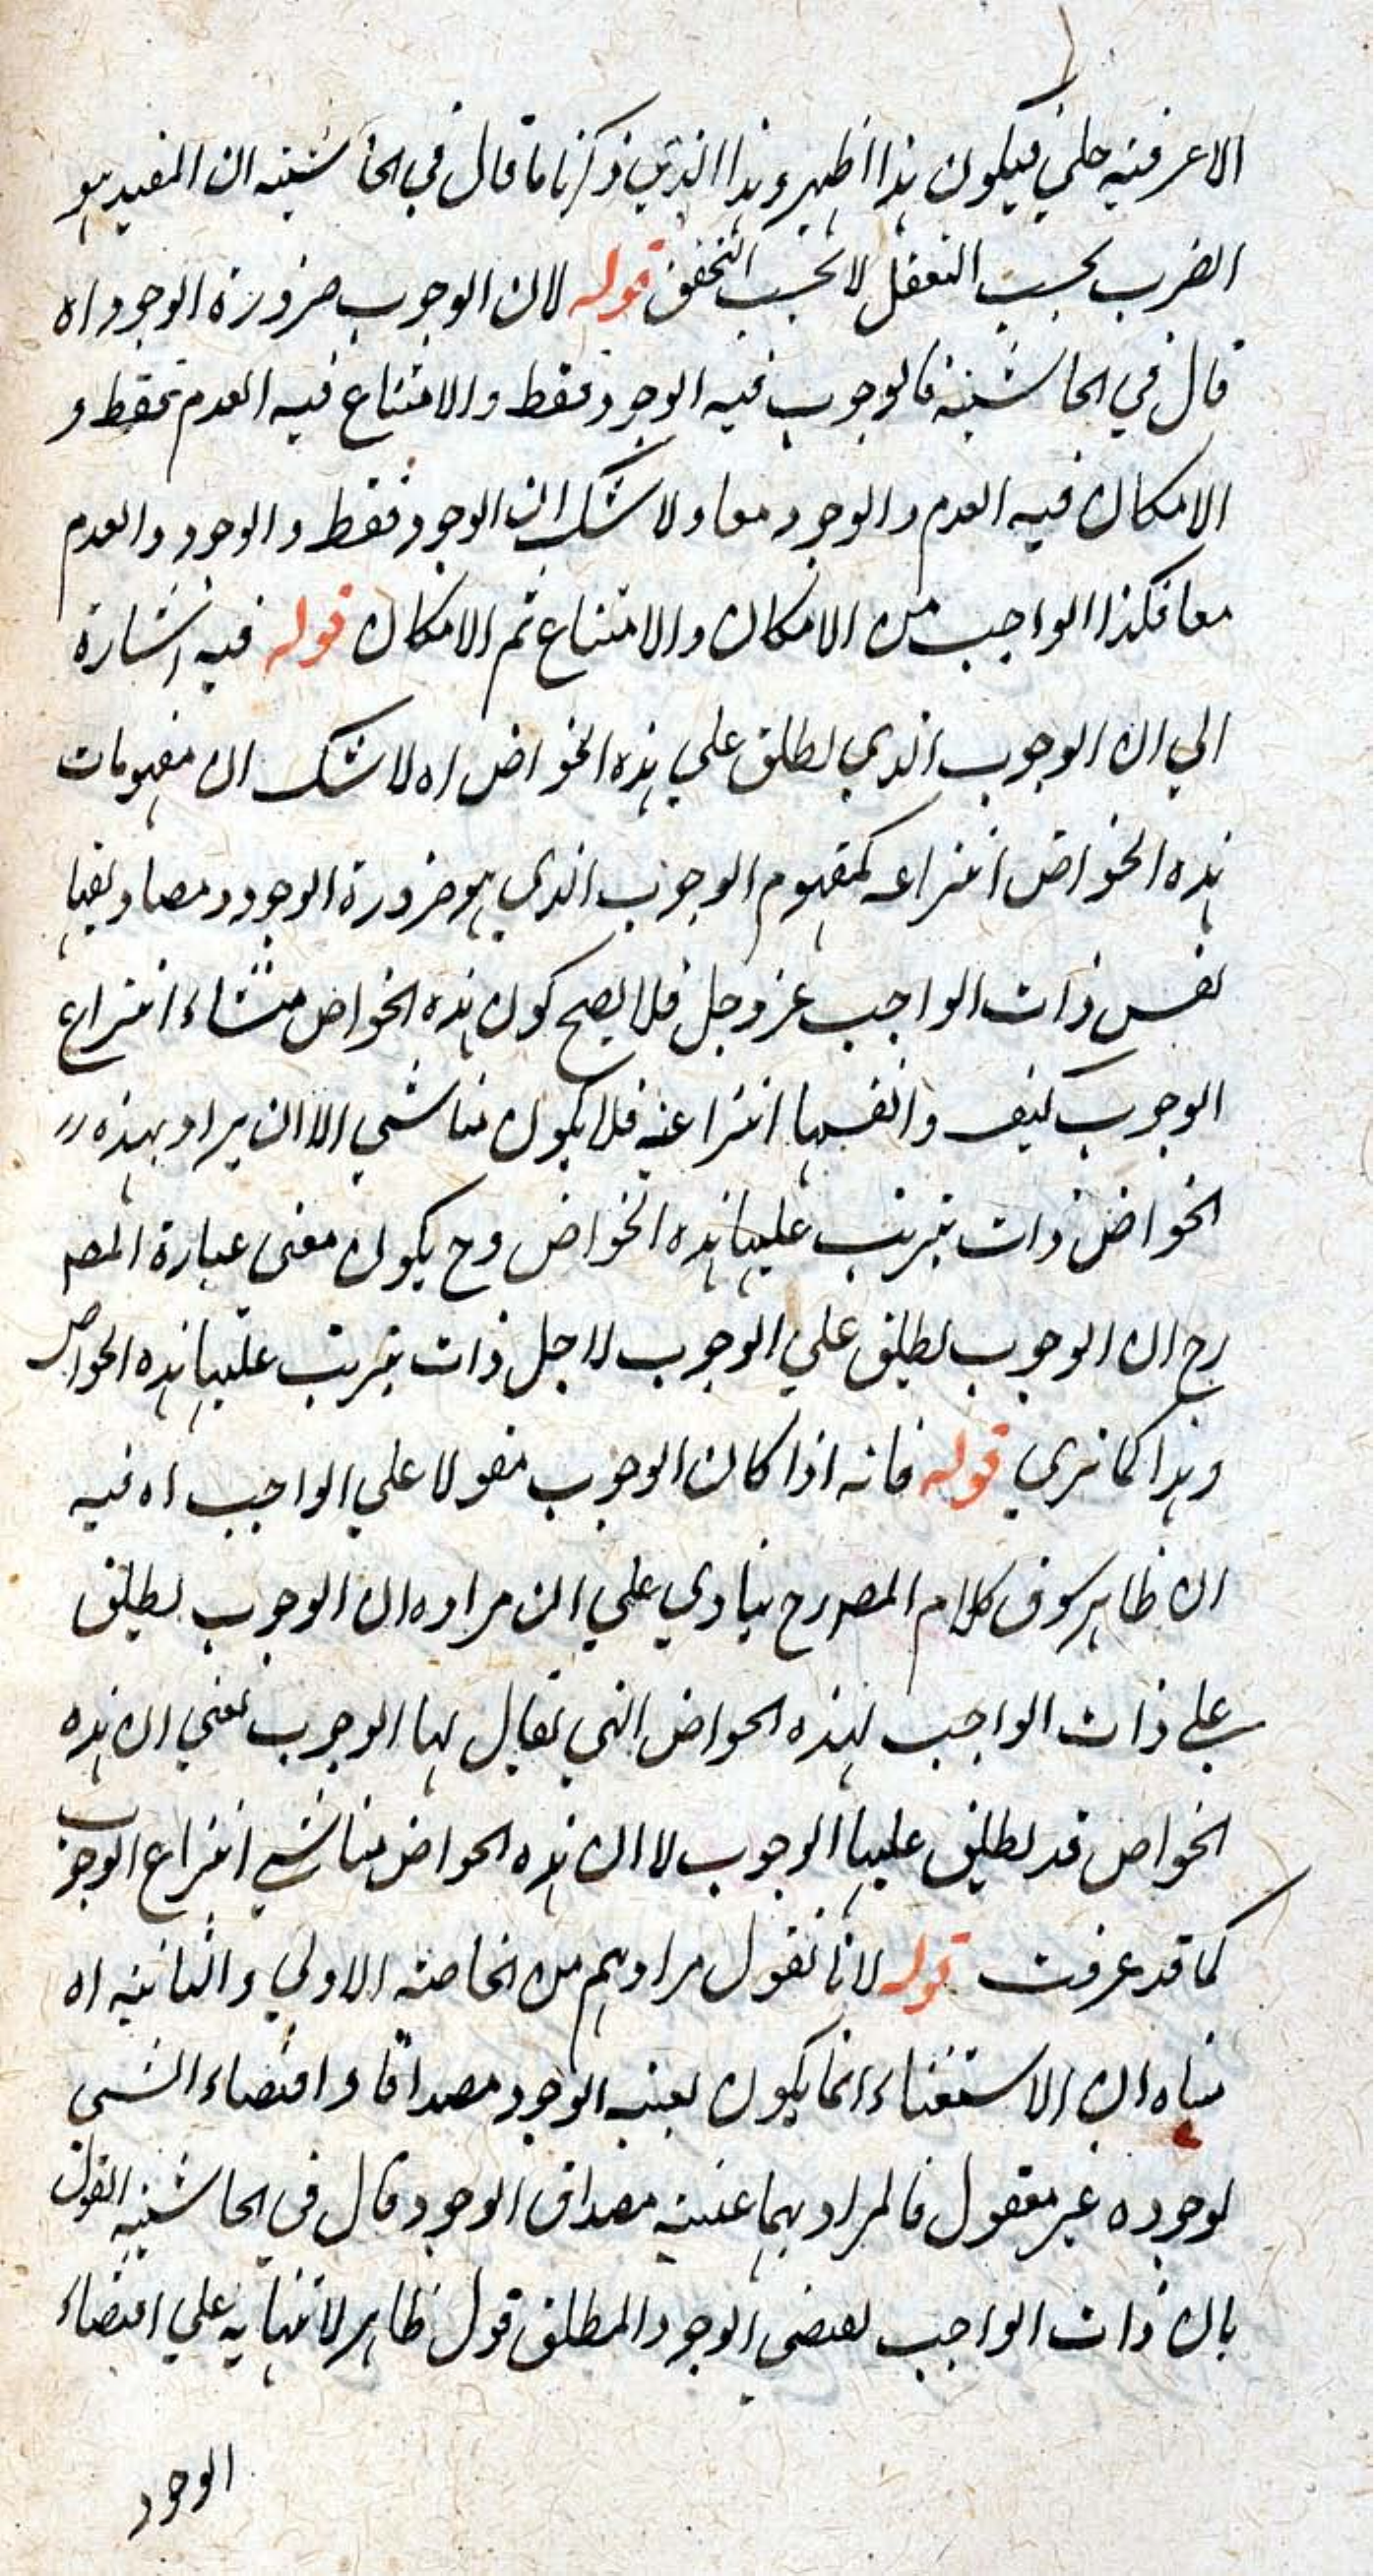 الاعرفية جلي فيكون هذا اظهر وهذا الذي ذكرنا ما قال في الحاشية ان المفيد هو
القرب بحسب التعقل لا بحسب التحقق قوله لان الوجوب ضرورة الوجود اه
قال في الحاشية فالوجوب فيه الوجود فقط والامتناع فيه العدم فقط و
الامكان فيه العدم والوجود معا ولا شك ان الوجود فقط والوجود والعدم
معا فكذا الواجب من الامكان والامتناع ثم الامكان قوله فيه اشارة
الي ان الوجوب الذي يطلق علي هذه الخواص اه لا شك ان مفهومات
هذه الخواص انتزاعية كمفهوم الوجوب الذي هو ضرورة الوجود ومصاديقها
نفس ذات الواجب عز وجل فلا يصح كون هذه الخواص منشاء انتزاع
الوجوب كيف وانفسها انتزاعية فلا يكون مناشي الا ان يراد بهذه
الخواص ذات يترتب عليها هذه الخواص وح يكون معني عبارة المصـ
رح ان الوجوب يطلق علي الوجوب لاجل ذات يترتب عليها هذه الخواص
وهذا كما تري قوله فانه اذا كان الوجوب مقولا علي الواجب اه فيه
ان ظاهر سوق كلام المصـ رح ينادي علي ان مراده ان الوجوب يطلق
علے ذات الواجب لهذه الخواص التي يقال لها الوجوب يعني ان هذه
الخواص قد يطلق عليها الوجوب لا ان هذه الخواص مناشي انتزاع الوجوب
كما قد عرفت قوله لانا نقول مرادهم من الخاصة الاولي والثانية اه
مبناه ان الاستغناء انما يكون بعينية الوجود مصداقا واقتضاء الشي
لوجوده غير معقول فالمراد بهما عينية مصداق الوجود قال في الحاشية القول
بان ذات الواجب يقتضي الوجود المطلق قول ظاهر لابتنائه علي اقتضاء
الوجود